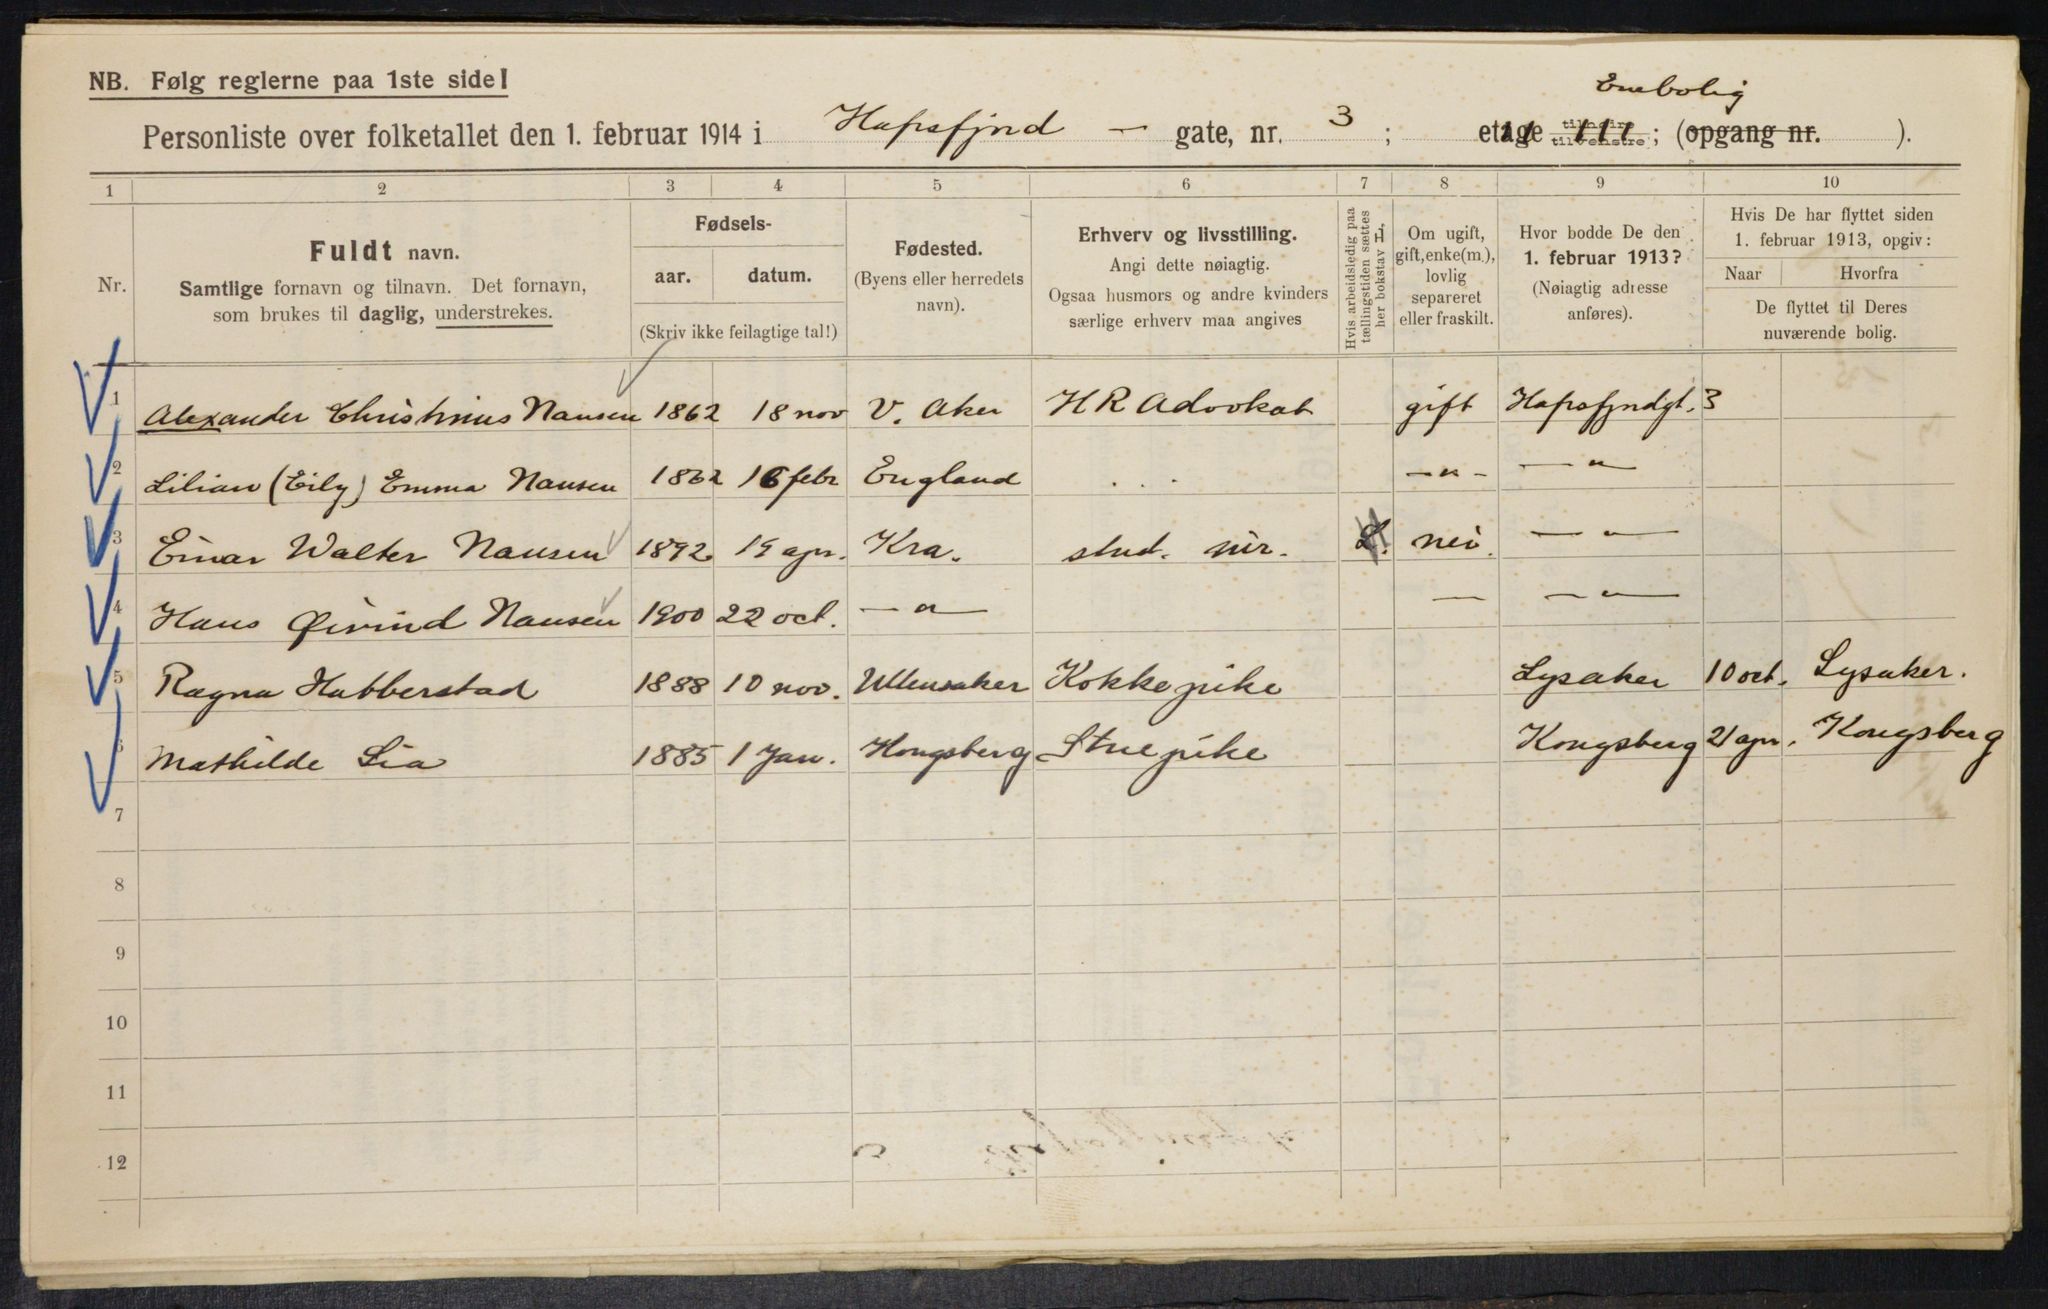 NB. Følg reglerne paa 1ste side!
Enebolig
Personliste over folketallet den 1. februar 1914 i Hafrsfjord — gate, nr. 3; etage tilhøire tilvenstre; (opgang nr. ).
1 2 3 4 5 6 7 8 9 10
Nr.
Fuldt navn.
Samtlige fornavn og tilnavn. Det fornavn,
som brukes til daglig, understrekes.
Fødsels-
aar. datum.
(Skriv ikke feilagtige tal!)
Fødested.
(Byens eller herredets
navn).
Erhverv og livsstilling.
Angi dette nøiagtig.
Ogsaa husmors og andre kvinders
særlige erhverv maa angives
Hvis arbeidsledig paa
tællingstiden sættes
her bokstav L.
Om ugift,
gift, enke(m.),
lovlig
separeret
eller fraskilt.
Hvor bodde De den
1. februar 1913?
(Nøiagtig adresse
anføres).
Hvis De har flyttet siden
1. februar 1913, opgiv:
Naar Hvorfra
De flyttet til Deres
nuværende bolig.
1 Alexander Christinus Nansen 1862 18 nov V. Aker HR Advokat gift Hafrsfjordgt. 3
2 Lilian (Eily) Emma Nansen 1862 16 febr England . . . —"— —"—
3 Einar Walter Nansen 1892 19 apr. Kra. stud. jur. L. nei. —"—
4 Hans Øivind Nansen 1900 22 oct. —"— — —"—
5 Ragna Habberstad 1888 10 nov. Ullensaker Kokkepike Lysaker 10 oct. Lysaker.
6 Mathilde Lia 1885 1 Jan. Kongsberg Stuepike Kongsberg 21 apr. Kongsberg
7
8
9
10
11
12